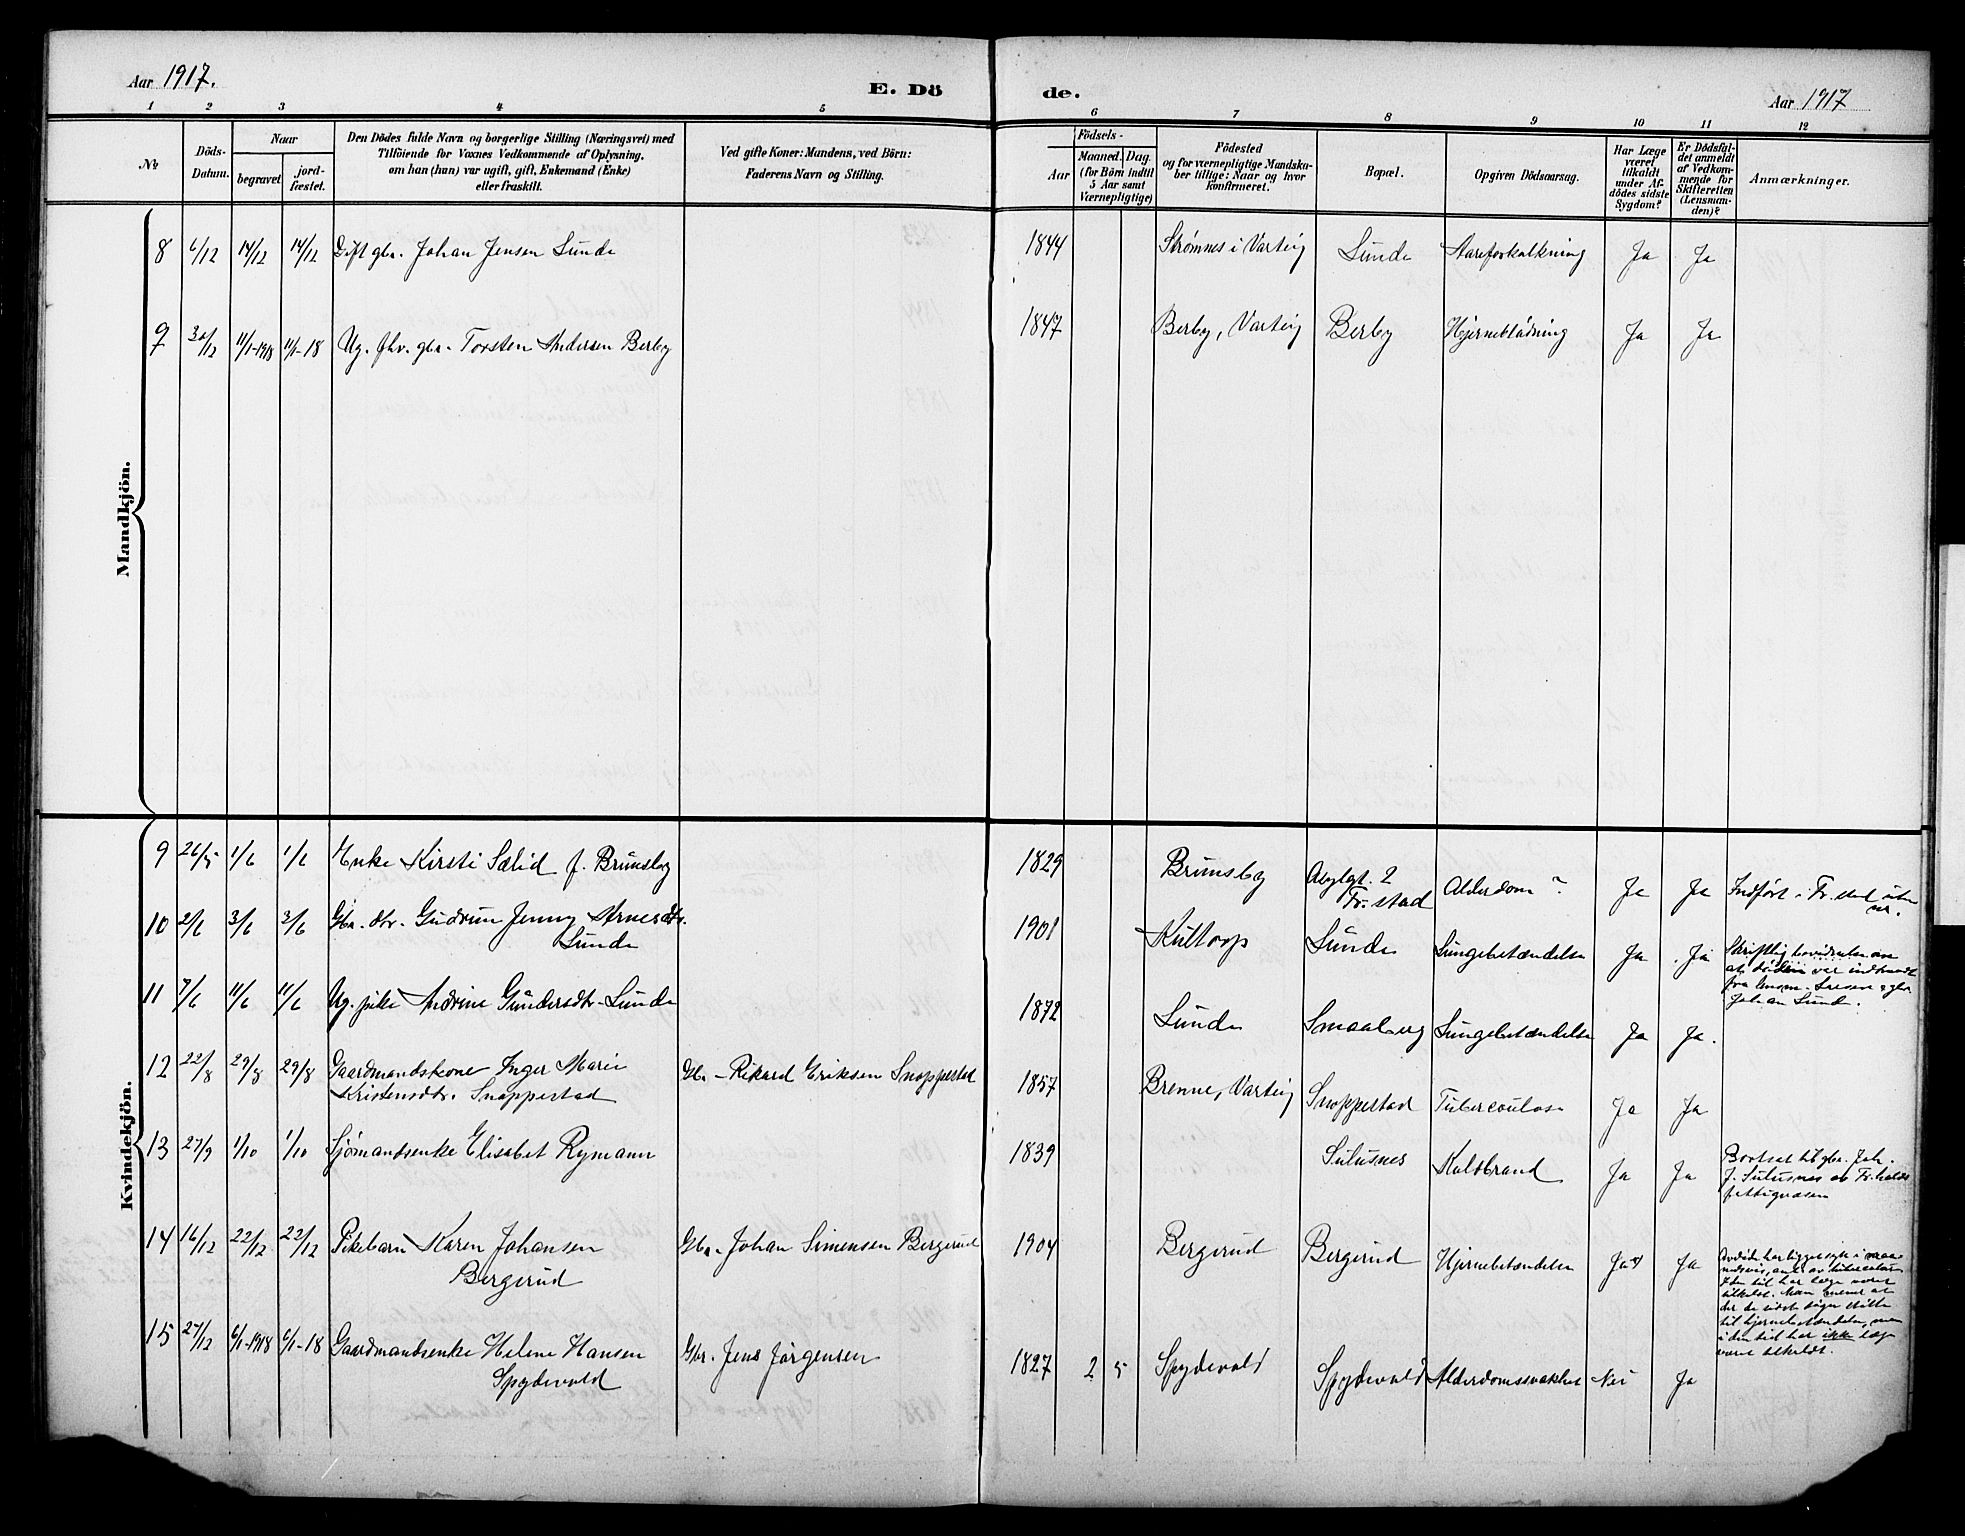 Aar 1917.
E. Dö
de.
Aar 1917
1 2 3 4 5
6 7 8 9 10 11 12
No
Döds-
Datum.
Naar
begravet
jord-
fæstet.
Den Dödes fulde Navn og borgerlige Stilling (Næringsvei) med
Tilföiende for Voxnes Vedkommende af Oplysning,
om han (hun) var ugift, gift, Enkemand (Enke)
eller fraskilt.
Ved gifte Koner: Mandens, ved Börn:
Faderens Navn og Stilling.
Födsels-
Aar
Maaned. Dag.
(for Börn indtil
5 Aar samt
Værnepligtige)
Födested
og for værnepligtige Mandska-
ber tillige: Naar og hvor
konfirmeret.
Bopæl.
Opgiven Dödsaarsag.
Har Læge
været
tilkaldt
under Af-
dödes sidste
Sygdom?
Er Dödsfal-
det anmeldt
af Vedkom-
mende for
Skifteretten
(Lensman-
den)?
Anmærkninger.
Mandkjön.
8 6/12 14/12 14/12 Gift gbr. Johan Jensen Lunde 1844 Strømnes i Varteig Lunde Aareforkalkning Ja Ja
9 30/12 11/1-1918 11/1-18 Ug. fhv. gbr. Torsten Andersen Berby 1847 Berby, Varteig Berby Hjerneblødning Ja Ja
Kvindekjön.
9 26/5 1/6 1/6 Enke Kirsti Sælid f. Brunsby 1829 Brunsby Asylgt. 2
Fr.stad Alderdom ? Ja Ja Indført i Fr.stad uten
nr.
10 2/6 3/6 3/6 Gbr. dtr. Gudrun Jenny Arnesdtr.
Lunde 1901 Kultorp Lunde Lungebetændelse Ja Ja Skriftlig bevidnelse om
at døden var indtraadt
fra lensm.
Johan Lunde.
11 7/6 11/6 11/6 Ug. pike Andrine Gundersdtr. Lunde 1872 Lunde Smaaberg Lungebetændelse Ja Ja.
12 22/8 29/8 29/8 Gaardmandskone Inger Marie
Kristensdtr. Snoppestad Gbr. Rikard Eriksen Snoppestad 1857 Brenne, Varteig Snoppestad Tuberculose Ja Ja
13 27/9 1/10 1/10 Sjømandsenke Elisabet Rymann 1839 Sulusnes Koldbrand Ja Ja Bortsat til gbr. Joh.
J. Sulusnes av Fr.halds
fattigvæsen
14 16/12 22/12 22/12 Pikebarn Karen Johansen
Bergerud Gbr. Johan Simensen Bergerud 1904 Bergerud Bergerud Hjernebetændelse Ja Ja Avdøde har ligget syk i maa-
nedsvis, ant. av tuberculose.
I den tid har læge været
tilkaldt. Man mener at
der de sidste dager støtte
til hjernebetændelse, men
i den tid har ikke læge
været tilkaldt.
15 27/12 6/1-1918 6/1-18 Gaardmandsenke Helene Hansen
Spydevold Gbr. Jens Jørgensen 1827 2 5 Spydevold Spydevold Alderdomssvakhet Nei Ja